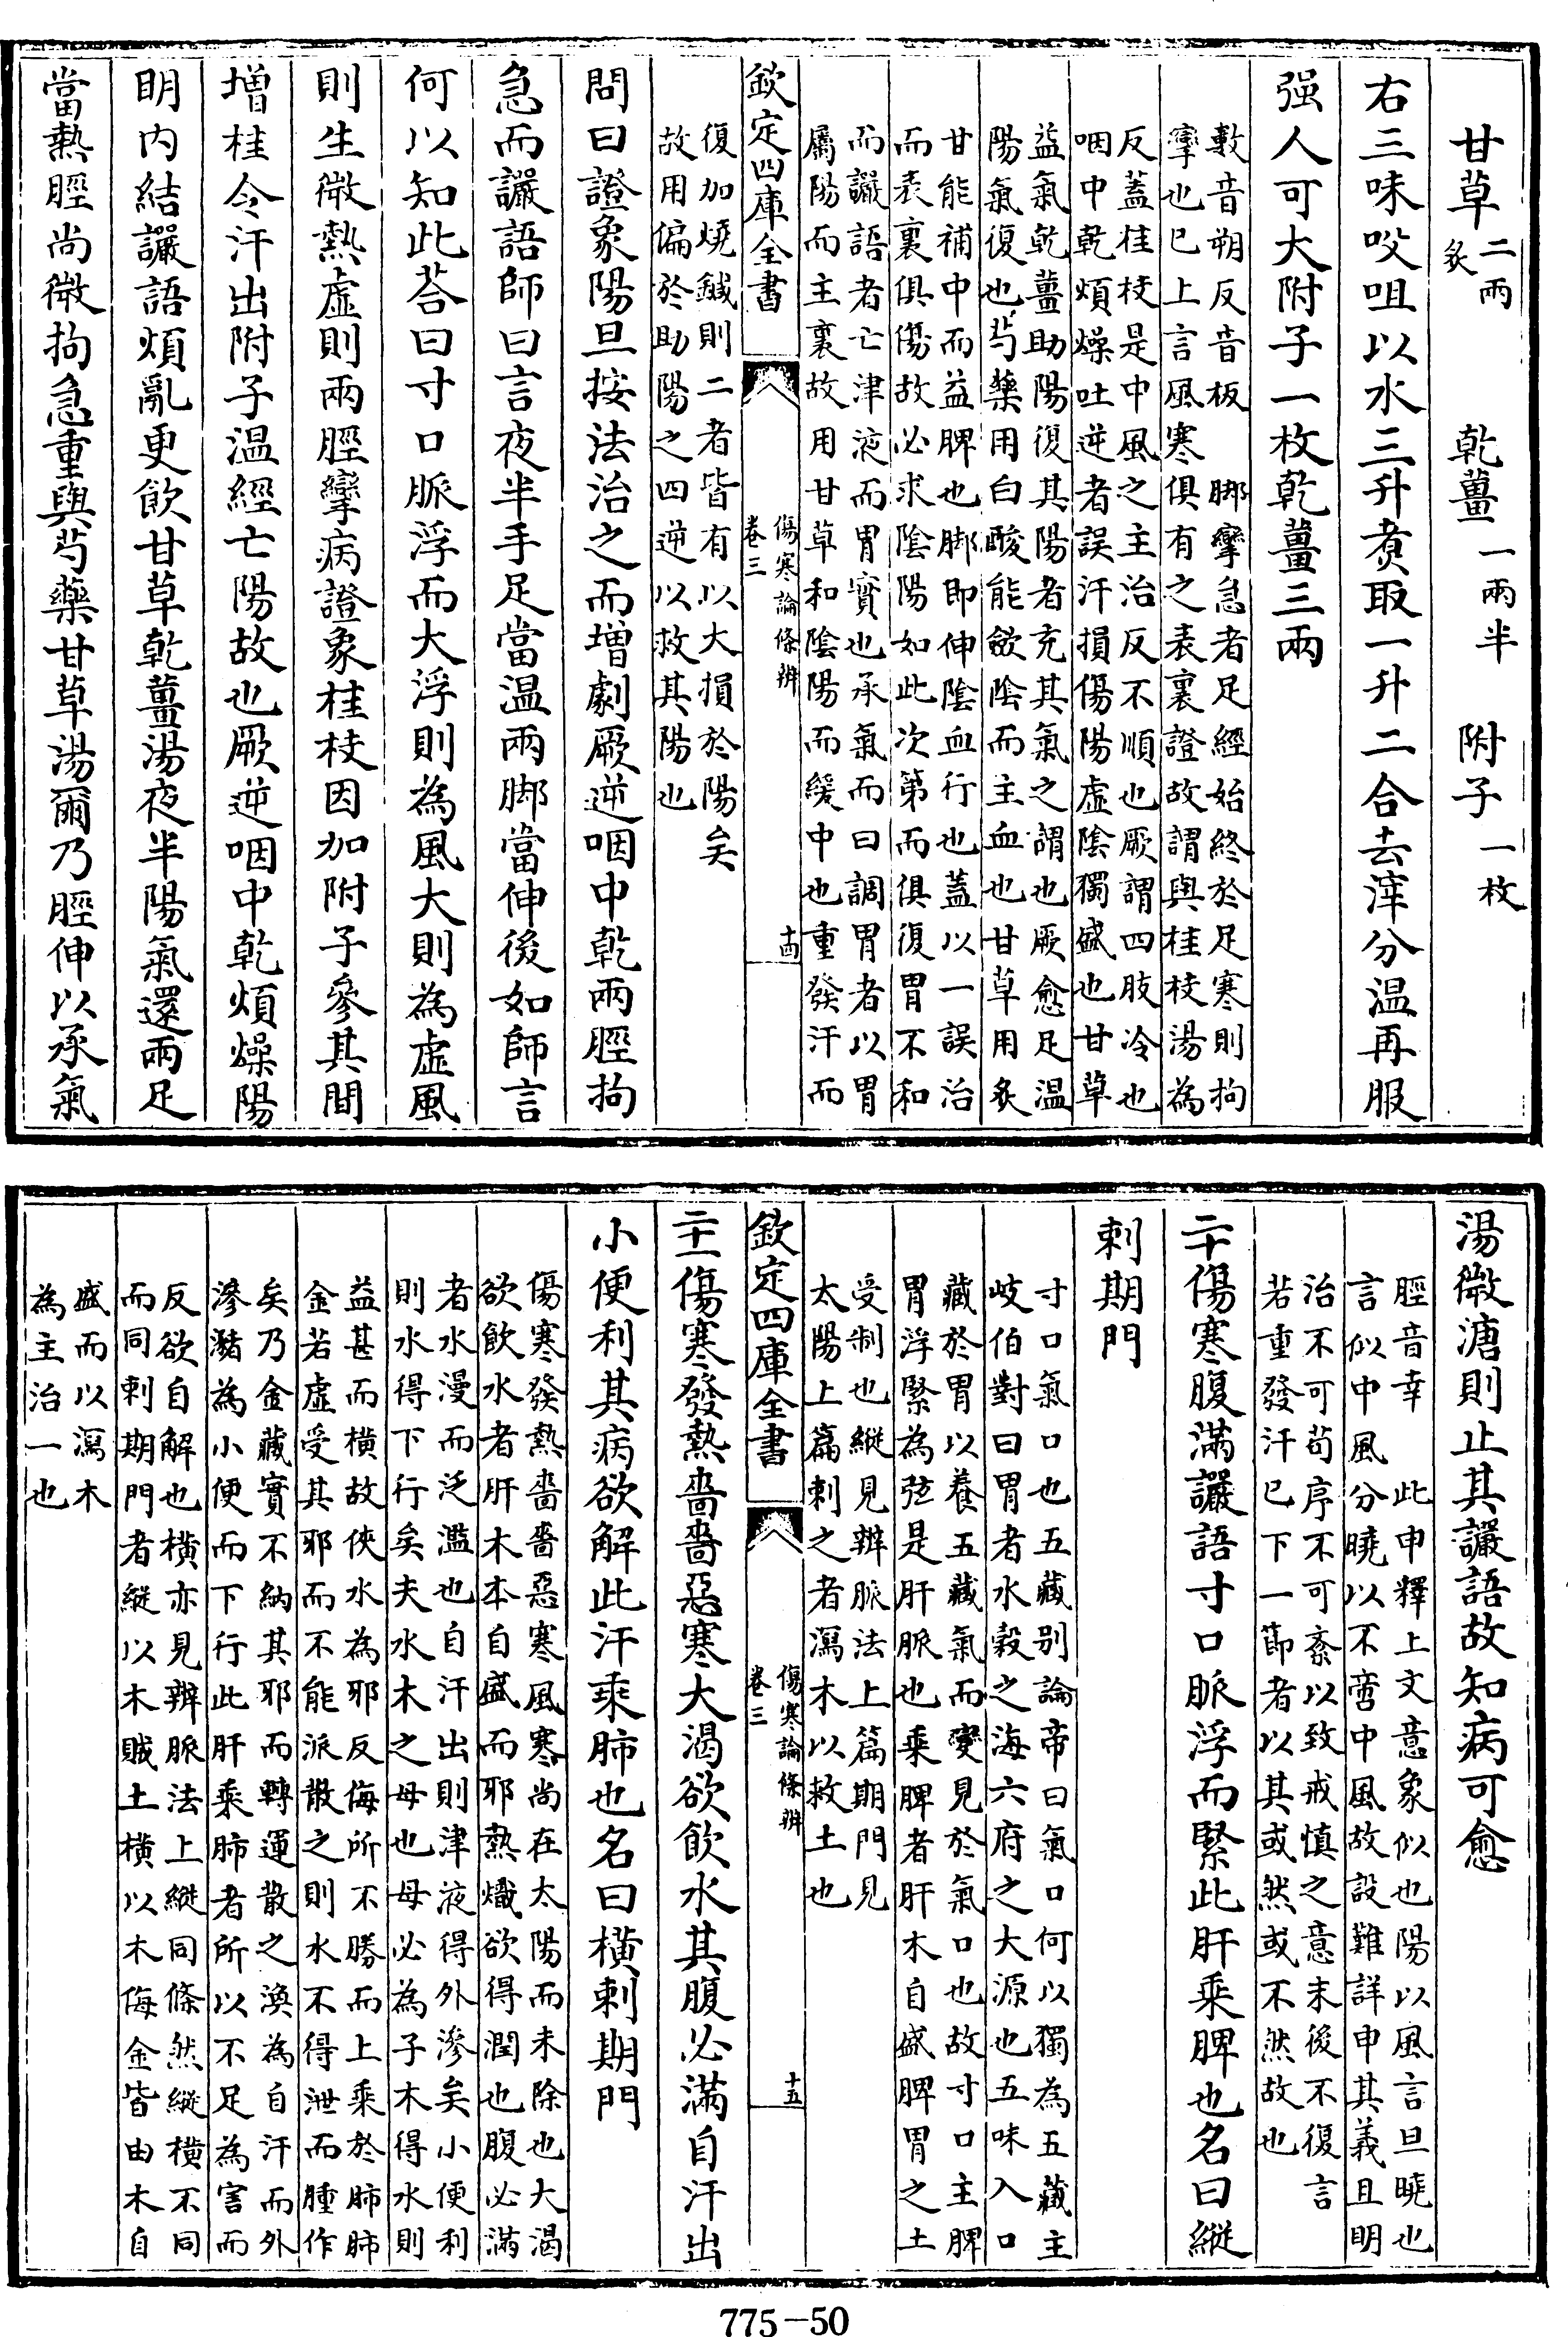 甘草二兩炙　乾薑一兩半　附子一枚
右三味㕮咀以水三升煑取一升二合去滓分温再服
强人可大附子一枚乾薑三兩
數音朔反音板　脚攣急者足經始終於足寒則拘
攣也已上言風寒俱有之表裏證故謂與桂枝湯為
反蓋桂枝是中風之主治反不順也厥謂四肢冷也
咽中乾煩燥吐逆者誤汗損傷陽虚陰獨盛也甘草
益氣乾薑助陽復其陽者充其氣之謂也厥愈足温
陽氣復也芍藥用白酸能歛陰而主血也甘草用炙
甘能補中而益脾也脚即伸陰血行也蓋以一誤治
而表裏俱傷故必求陰陽如此次第而俱復胃不和
而讝語者亡津液而胃實也承氣而曰調胃者以胃
屬陽而主裏故用甘草和陰陽而緩中也重發汗而
欽定四庫全書
傷寒論條辨
卷三
十四
復加燒鍼則二者皆有以大損於陽矣
故用偏於助陽之四逆以救其陽也
問曰證象陽旦按法治之而增劇厥逆咽中乾兩脛拘
急而讝語師曰言夜半手足當温兩脚當伸後如師言
何以知此荅曰寸口脈浮而大浮則為風大則為虚風
則生微熱虚則兩脛攣病證象桂枝因加附子參其間
增桂令汗出附子温經亡陽故也厥逆咽中乾煩燥陽
明内結讝語煩亂更飲甘草乾薑湯夜半陽氣還兩足
當熱脛尚微拘急重與芍藥甘草湯爾乃脛伸以承氣
湯微溏則止其讝語故知病可愈
脛音幸　此申釋上文意象似也陽以風言旦曉也
言似中風分曉以不啻中風故設難詳申其義且明
治不可茍序不可紊以致戒慎之意末後不復言
若重發汗已下一節者以其或然或不然故也
二十傷寒腹滿讝語寸口脈浮而緊此肝乘脾也名曰縱
刺期門
寸口氣口也五藏别論帝曰氣口何以獨為五藏主
岐伯對曰胃者水穀之海六府之大源也五味入口
藏於胃以養五藏氣而變見於氣口也故寸口主脾
胃浮緊為弦是肝脈也乘脾者肝木自盛脾胃之土
受制也縱見辨脈法上篇期門見
太陽上篇刺之者瀉木以救土也
欽定四庫全書
傷寒論條辨
卷三
十五
二十一傷寒發熱嗇嗇惡寒大渴欲飲水其腹必滿自汗出
小便利其病欲解此汗乘肺也名曰橫刺期門
傷寒發熱嗇嗇惡寒風寒尚在太陽而未除也大渴
欲飲水者肝木本自盛而邪熱熾欲得潤也腹必滿
者水漫而泛濫也自汗出則津液得外滲矣小便利
則水得下行矣夫水木之母也母必為子木得水則
益甚而橫故俠水為邪反侮所不勝而上乘於肺肺
金若虚受其邪而不能派散之則水不得泄而腫作
矣乃金藏實不納其邪而轉運散之渙為自汗而外
滲瀦為小便而下行此肝乘肺者所以不足為害而
反欲自解也橫亦見辨脈法上縱同條然縱橫不同
而同刺期門者縱以木賊土橫以木侮金皆由木自
盛而以瀉木
為主治一也
775-50